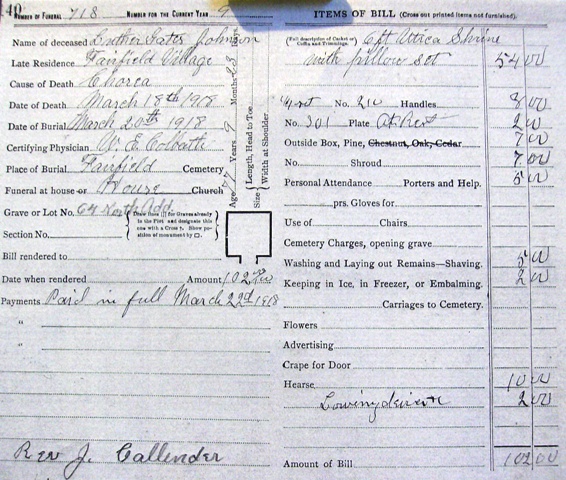 40
NUMBER OF FUNERAL 718 NUMBER FOR THE CURRENT YEAR 9
Name of deceased Luther Gates Johnson
Late Residence Fairfield Village
Cause of Death Chorea
Date of Death March 18th 1918
Date of Burial March 20th 1918
Certifying Physician W. E. Colbath
Place of Burial Fairfield Cemetery
Funeral at house or House Church
Grave or Lot No. 64 North Add
Section No.
Draw lines [ ] for Graves already in the Plot and designate this one with a Cross †. Show position of monument by □.
Bill rendered to
Date when rendered Amount, 102 00
Payments Paid in full March 22d 1918
"
"
Rev J. Callender
Age 77 Years 9 Months 23 Days
Size { Length, Head to Toe.
Width at Shoulder
ITEMS OF BILL (Cross out printed items not furnished).
(Full description of Casket or Coffin and Trimmings. 6ft Utica Shrine
with pillow set 54 00
No. 210 Handles 8 00
No. 301 Plate At Rest 2 00
Outside Box, Pine, Chestnut, Oak, Cedar 7 00
No. Shroud 7 00
Personal Attendance Porters and Help. 5 00
prs. Gloves for
Use of Chairs
Cemetery Charges, opening grave
Washing and Laying out Remains—Shaving. 5 00
Keeping in Ice, in Freezer, or Embalming. 2 00
Carriages to Cemetery.
Flowers
Advertising
Crape for Door
Hearse 10 00
Lowering device 2 00
Amount of Bill 102 00